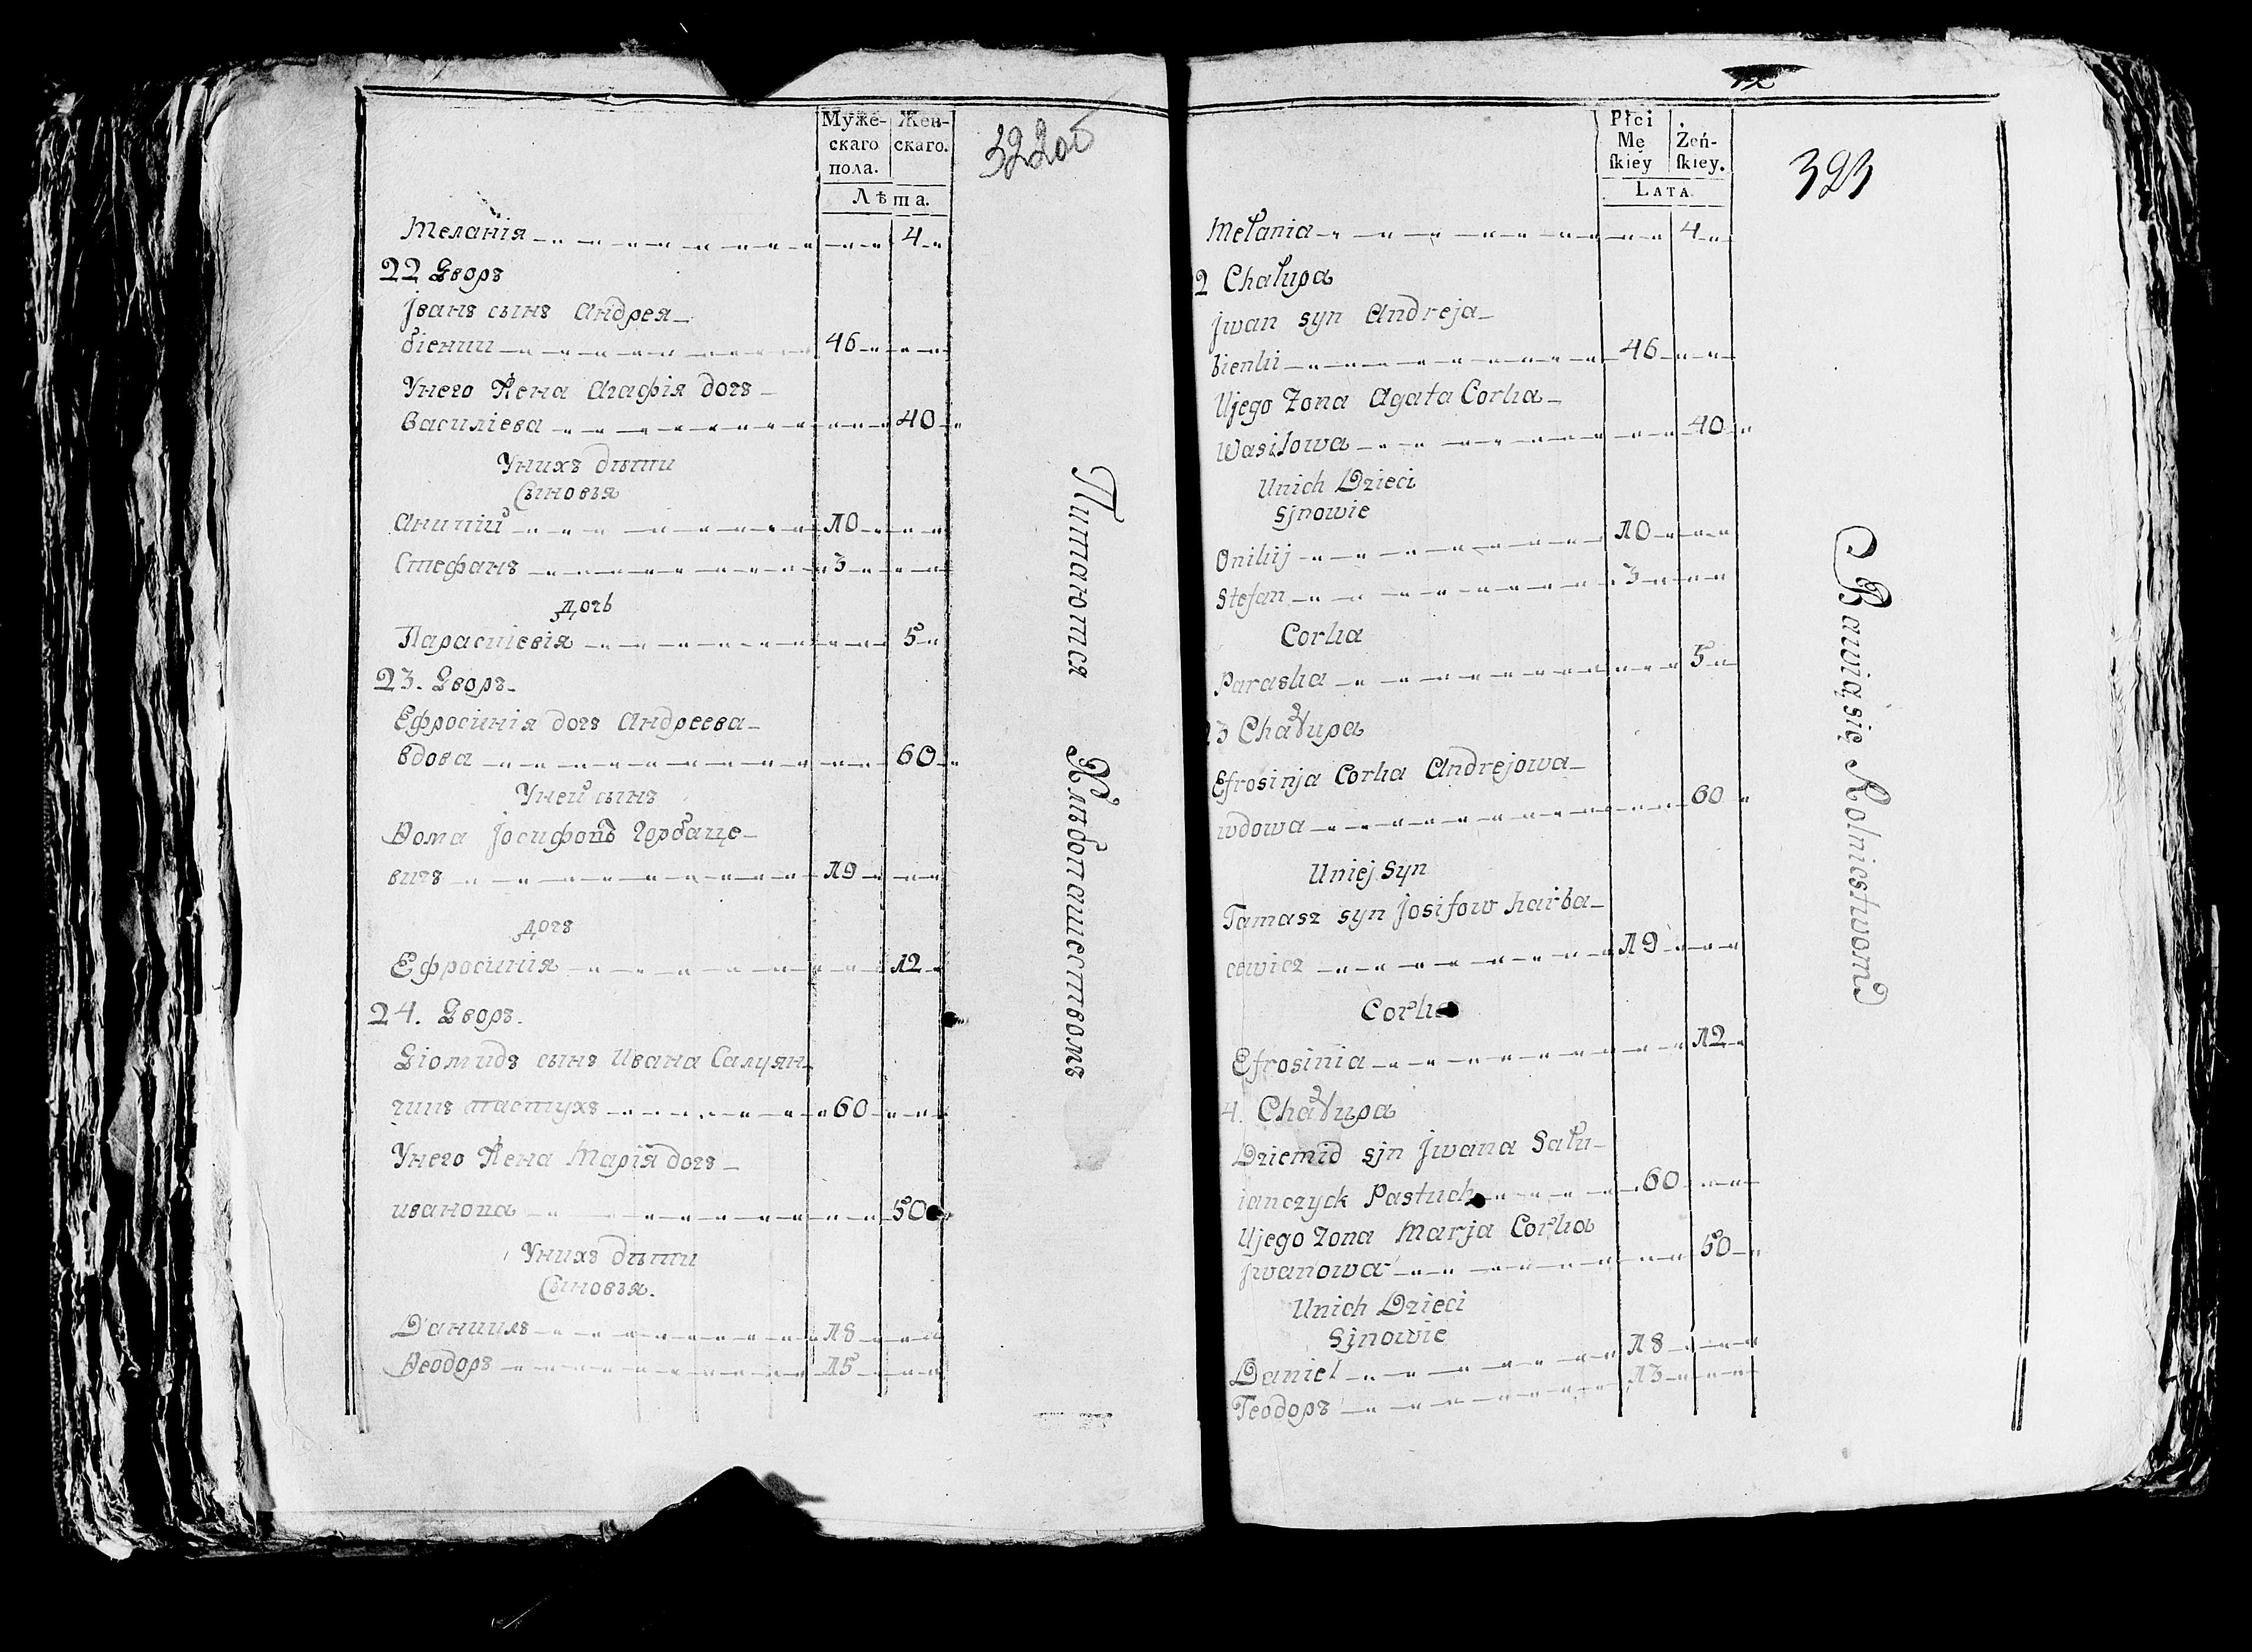 Муже-
скаго
пола.
Жен-
скаго.
Лѣта.
322об
Меланія 4
22 Дворъ
Јванъ сынъ Андрея
біении 46
Унего Жена Агафія дочъ
Василіева 40
Унихъ дѣти
Сыновья
Аникій 10
Стефанъ 3
Дочь
Параскіевія 5
23. Дворъ
Ефросинія дочъ Андреева
вдова 60
Уней сынъ
Ѳома Јосифовъ Горбаце
вичъ 19
Дочъ
Ефросинія 12
24. Дворъ.
Діомидъ сынъ Ивана Салуян
чикъ пастухъ 60
Унего Жена Марія дочъ
иванова 50
Унихъ дѣти
Сыновья.
Даниилъ 18
Ѳеодоръ 15
Питаются Хлѣбопашествомъ
12
Płci
Mę
ſkiey
Żeń-
ſkiey.
LATA
323
Mełania 4
2 Chałupa
Jwan syn Andreja
bienki 46
Ujego Zona Agata Corka
Wasilowa 40
Unich Dzieci
Sjnowie
Onikij 10
Stefan 3
Corka
Paraska 5
23 Chałupa
Efrosinja Corka Andrejowa
wdowa 60
Uniej Syn
Tamasz syn Josifow harba
cewicz 19
Corka
Efrosinia 12
4. Chałupa
Dziemid sjn Jwana Sału
ianczyck Pastuch 60
Ujego Zona Marja Corka
Jwanowa 50
Unich Dzieci
Sjnowie
Daniel 18
Теодоръ 13
Bawiąsię Rolnictwom